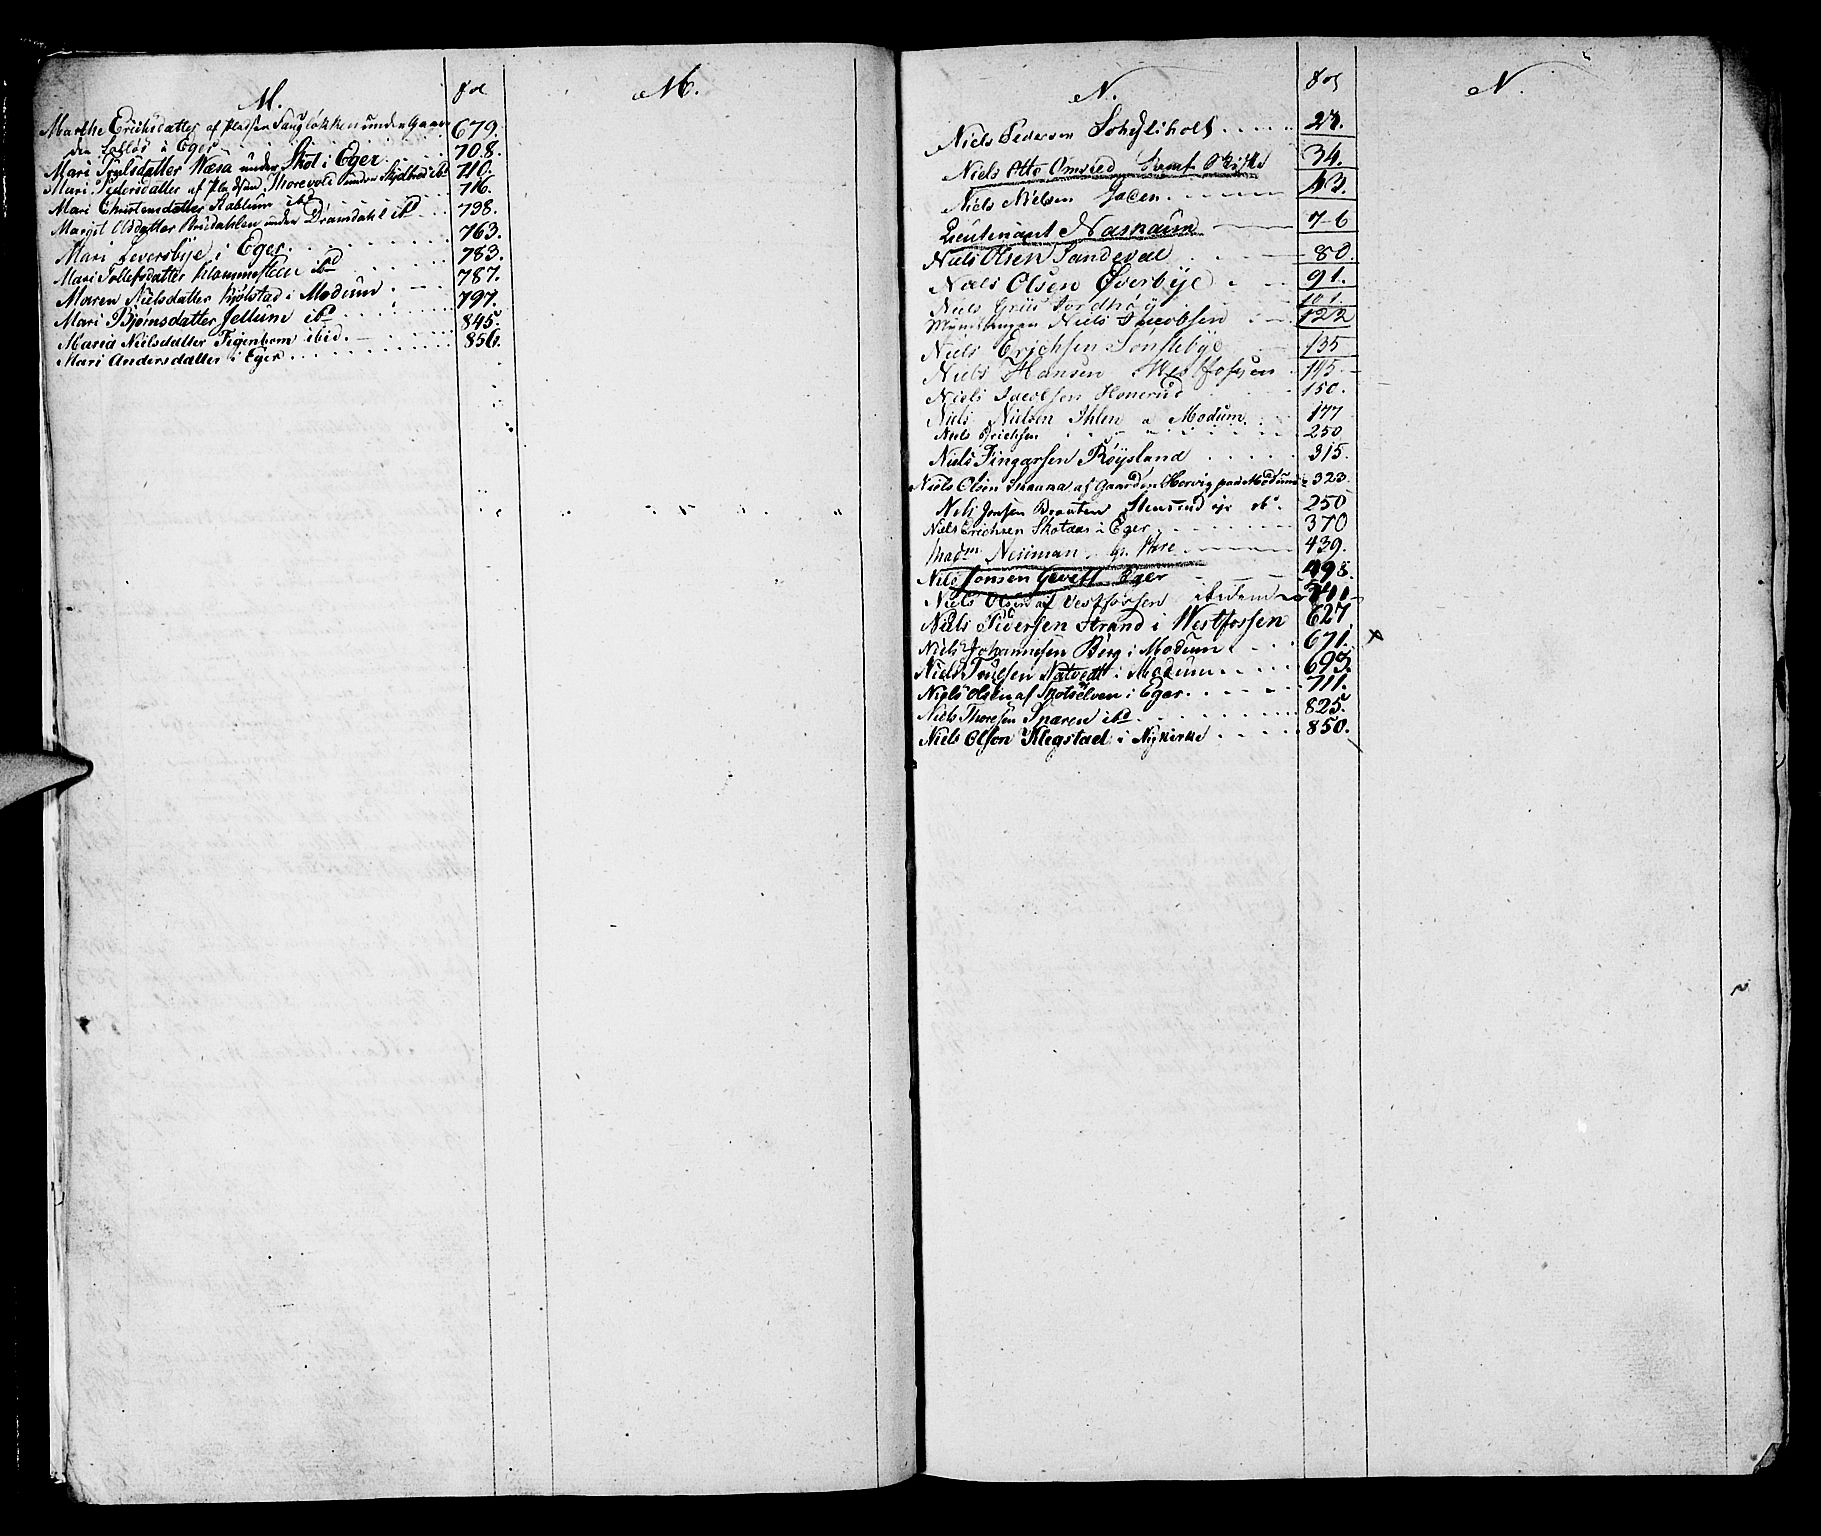 M.
fol
M.
Marthe Erichsdatter af Pladsen Hougløkken under Gaar- 679.
den i Eger
Mari Truelsdatter Næsa under Skot i Eger. 708.
Mari Pedersdatter af Pladsen Thorevold under ibd 710.
Mari Christensdatter Aablum ibd 716.
Margit Olsdatter under Dramdahl ibd 738.
Mari Leversbye i Eger 763.
Mari Tollefsdatter Klommesteen ibd 783.
Maren Nielsdatter Kjølstad i Modum 787.
Mari Bjørnsdatter Jellum ibd 797.
Maria Nielsdatter Tigenhom ibid. 845.
Mari Andersdatter i Eger 856.
N.
fol
N.
Niels Pedersen 27.
Niels Otto Omsted 34.
Niels Nielsen 43.
Lieutenant 76
Niels Olsen Sandeval 80.
Niels Olsen Øverbye 91.
Niels Griis 101.
Niels Jacobsen 122
Niels Erichsen Sønstebye 135
Niels Hansen Westfossen 145.
Niels Jacobsen Honerud 150.
Niels Nielsen Ihlen a Modum 177
Niels Erichsen 250
Niels Fingarsen Røysland 315.
Niels Olsen af Gaarden Horvig paa Modum 323
Nels Jonsen Braaten Stensrud 250
Niels Erichsen Skotaas i Eger 370
Madm Neuman 439.
Nils Jonsen Eger 498.
Niels Olsen af Vestfossen ibidem 541
Niels Pedersen Strand i Westfossen 627.
Niels Johannesen Berg i Modum 671.
Niels Truelsen i Modum 693.
Niels Olsen af Skotselven i Eger 711.
Niels Thoresen Sparen ibd 825.
Niels Olson Klegstad i Nykirke 850.